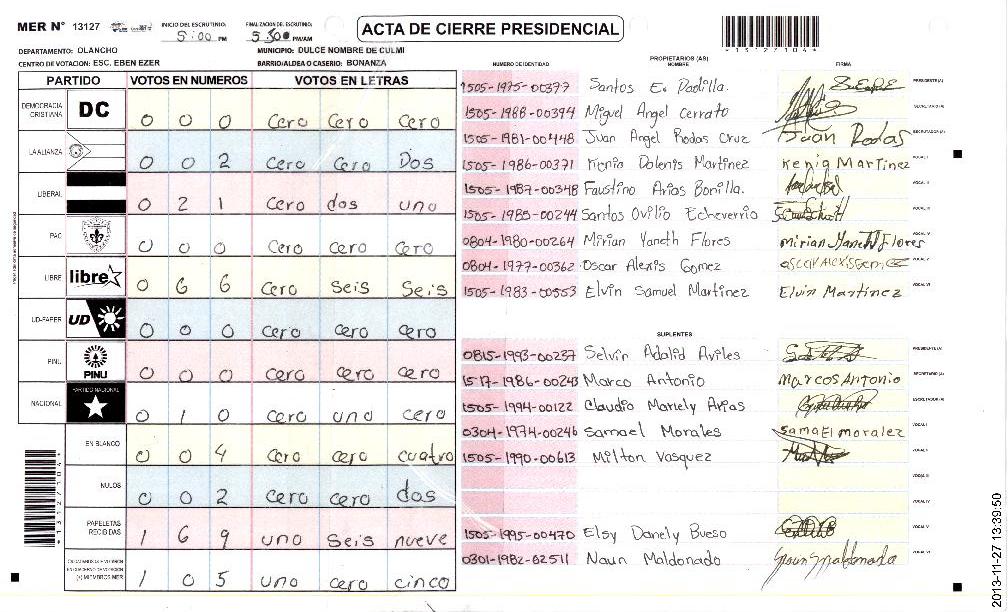 MER N° 13127
INICIO DEL ESCRUTINIO: 5:00 PM
FINALIZACION DEL ESCRUTINIO: 5:300 PM/AM
ACTA DE CIERRE PRESIDENCIAL
*13127104*
DEPARTAMENTO: OLANCHO
MUNICIPIO: DULCE NOMBRE DE CULMI
CENTRO DE VOTACION: ESC. EBEN EZER
BARRIO/ALDEA O CASERIO: BONANZA
PARTIDO VOTOS EN NUMEROS VOTOS EN LETRAS
DEMOCRACIA CRISTIANA DC 0 0 0 Cero Cero Cero
LA ALIANZA 0 0 2 Cero Cero Dos
LIBERAL 0 2 1 Cero dos uno
PAC 0 0 0 Cero Cero Cero
LIBRE libre 0 6 6 Cero Seis Seis
UD-FAPER UD 0 0 0 Cero cero cero
PINU PINU 0 0 0 Cero cero cero
NACIONAL PARTIDO NACIONAL 0 1 0 Cero uno cero
EN BLANCO 0 0 4 Cero cero cuatro
NULOS 0 0 2 Cero cero dos
PAPELETAS RECIBIDAS 1 6 9 uno Seis nueve
(+) MIEMBROS MER 1 0 5 uno cero cinco
*13127104*
PROPIETARIOS (AS)
NUMERO DE IDENTIDAD NOMBRE FIRMA
1505-1975-00377 Santos E. Padilla. PRESIDENTE(A)
1505-1988-00394 Miguel Angel Cerrato SECRETARIO(A)
1505-1981-00448 Juan Angel Rodas Cruz Juan Rodas ESCRUTADOR(A)
1505-1986-00371 Kenia Dolenis Martinez Kenia Martinez VOCAL I
1505-1987-00348 Faustino Arias Bonilla. VOCAL II
1505-1985-00244 Santos Ovilio Echeverrio VOCAL III
0804-1980-00264 Mirian Yaneth Flores Mirian Yaneth Flores VOCAL IV
0804-1977-00362 Oscar Alexis Gomez VOCAL V
1505-1983-00553 Elvin Samuel Martinez Elvin Martinez VOCAL VI
SUPLENTES
0815-1993-00237 Selvin Adalid Aviles PRESIDENTE(A)
1517-1986-00243 Marco Antonio Marcos Antonio SECRETARIO(A)
1505-1994-00122 Claudio Mariely Arias ESCRUTADOR(A)
0304-1974-00246 Samael Morales Samael moralez VOCAL I
1505-1990-00613 Milton Vasquez VOCAL II
VOCAL III
VOCAL IV
1505-1995-00470 Elsy Danely Bueso VOCAL V
0301-1982-02511 Naun Maldonado Naun Maldonado VOCAL VI
2013-11-27 13:39:50